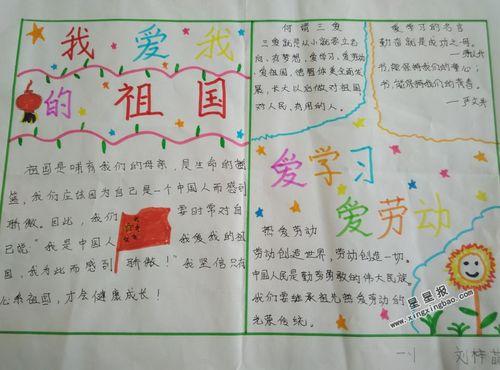 我爱我
的祖国
祖国是哺育我们的母亲,是生命的摇
篮,我们应该因为自己是一个中国人而感到
骄傲。因此,我们要时常对自
己说:"我是中国人我爱我的祖
国,我为此而感到骄傲!"我坚信只有
心系祖国,才会健康成长!
何谓三爱
三爱就是从小就要立志
向,有梦想,爱学习,爱劳动
,爱祖国,德智体美全面发
展,长大以后做对祖国
对人民,有用的人。
爱学习的名言
勤奋就是成功之母。
——茅以升
书,能保持我们的童心;
书,能保持我们的青春。
——严文井
爱学习
爱劳动
热爱劳动
劳动创造世界,劳动创造一切。
中国人民是勤劳勇敢的伟大民族
我们要继承祖先热爱劳动的
光荣传统。
星星报
www.xingxingbao.com
一1 刘梓